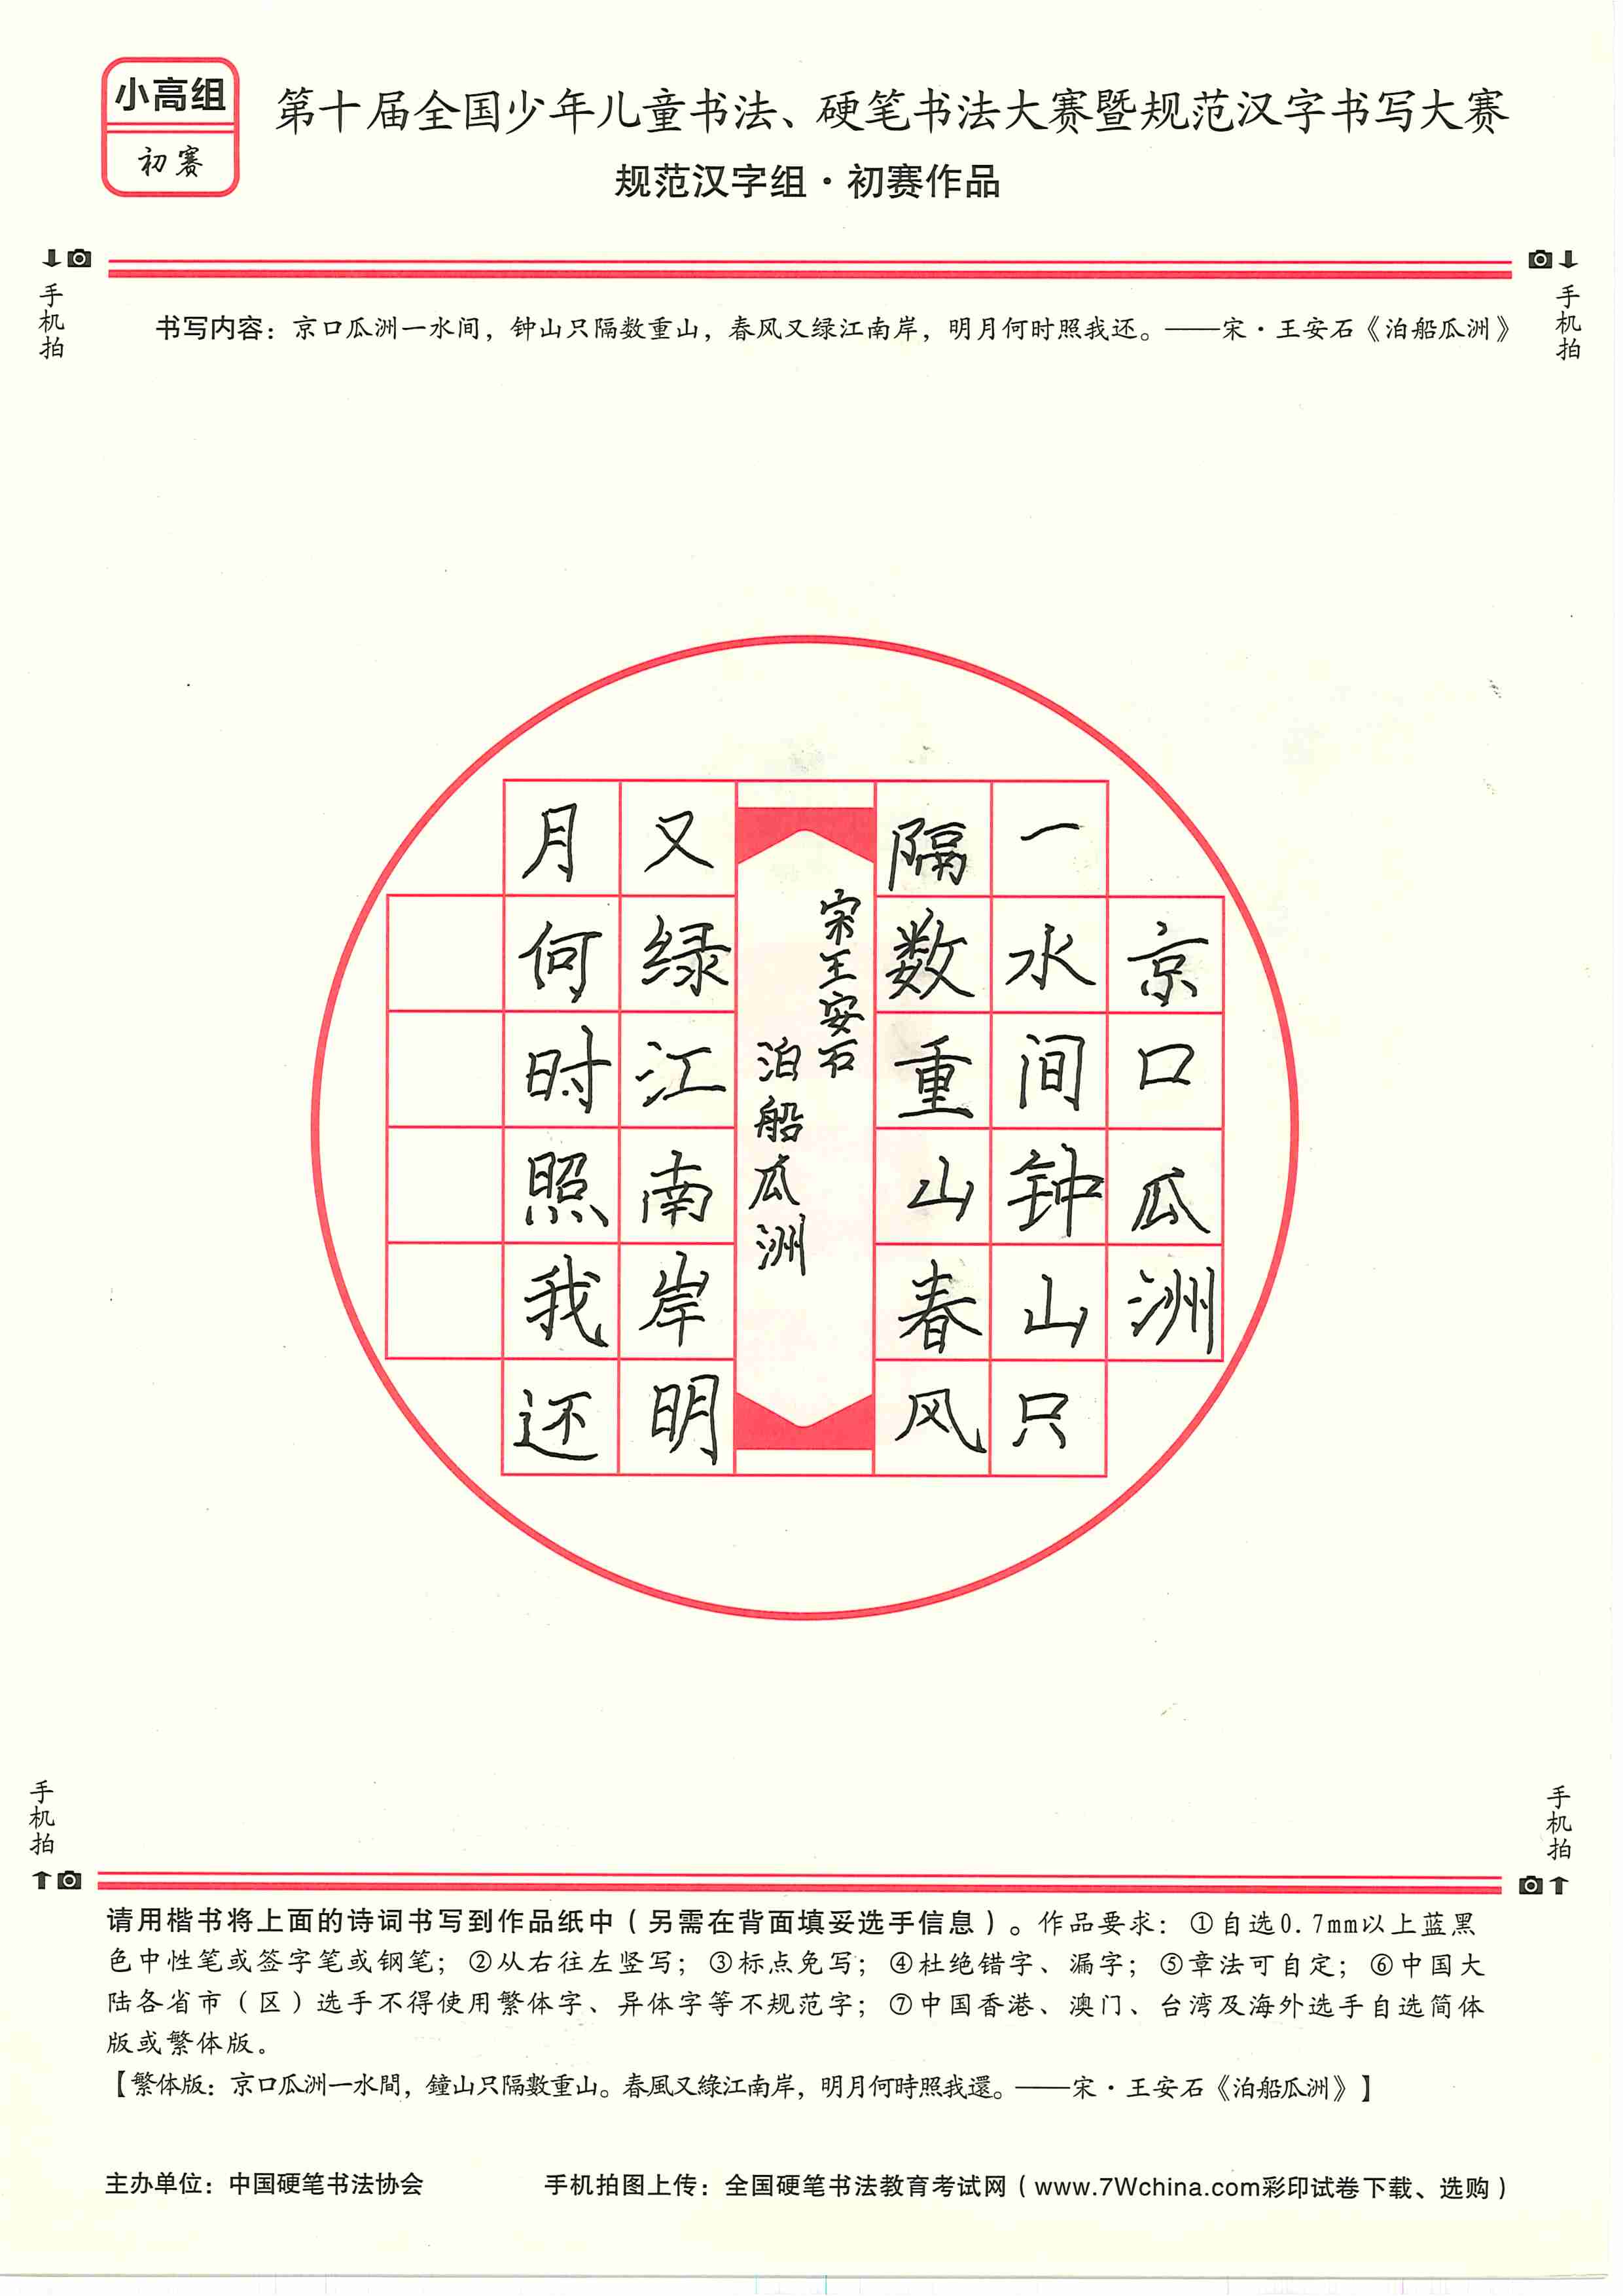 小高组
初赛
第十届全国少年儿童书法、硬笔书法大赛暨规范汉字书写大赛
规范汉字组·初赛作品
手机拍
手机拍
书写内容：京口瓜洲一水间，钟山只隔数重山，春风又绿江南岸，明月何时照我还。——宋·王安石《泊船瓜洲》
京口瓜洲
一水间钟山只
隔数重山春风
宋王安石
泊船瓜洲
又绿江南岸明
月何时照我还
手机拍
手机拍
请用楷书将上面的诗词书写到作品纸中（另需在背面填妥选手信息）。作品要求：①自选0.7mm以上蓝黑
色中性笔或签字笔或钢笔；②从右往左竖写；③标点免写；④杜绝错字、漏字；⑤章法可自定；⑥中国大
陆各省市（区）选手不得使用繁体字、异体字等不规范字；⑦中国香港、澳门、台湾及海外选手自选简体
版或繁体版。
【繁体版：京口瓜洲一水間，鐘山只隔數重山。春風又綠江南岸，明月何時照我還。——宋·王安石《泊船瓜洲》】
主办单位：中国硬笔书法协会
手机拍图上传：全国硬笔书法教育考试网（www.7Wchina.com彩印试卷下载、选购）